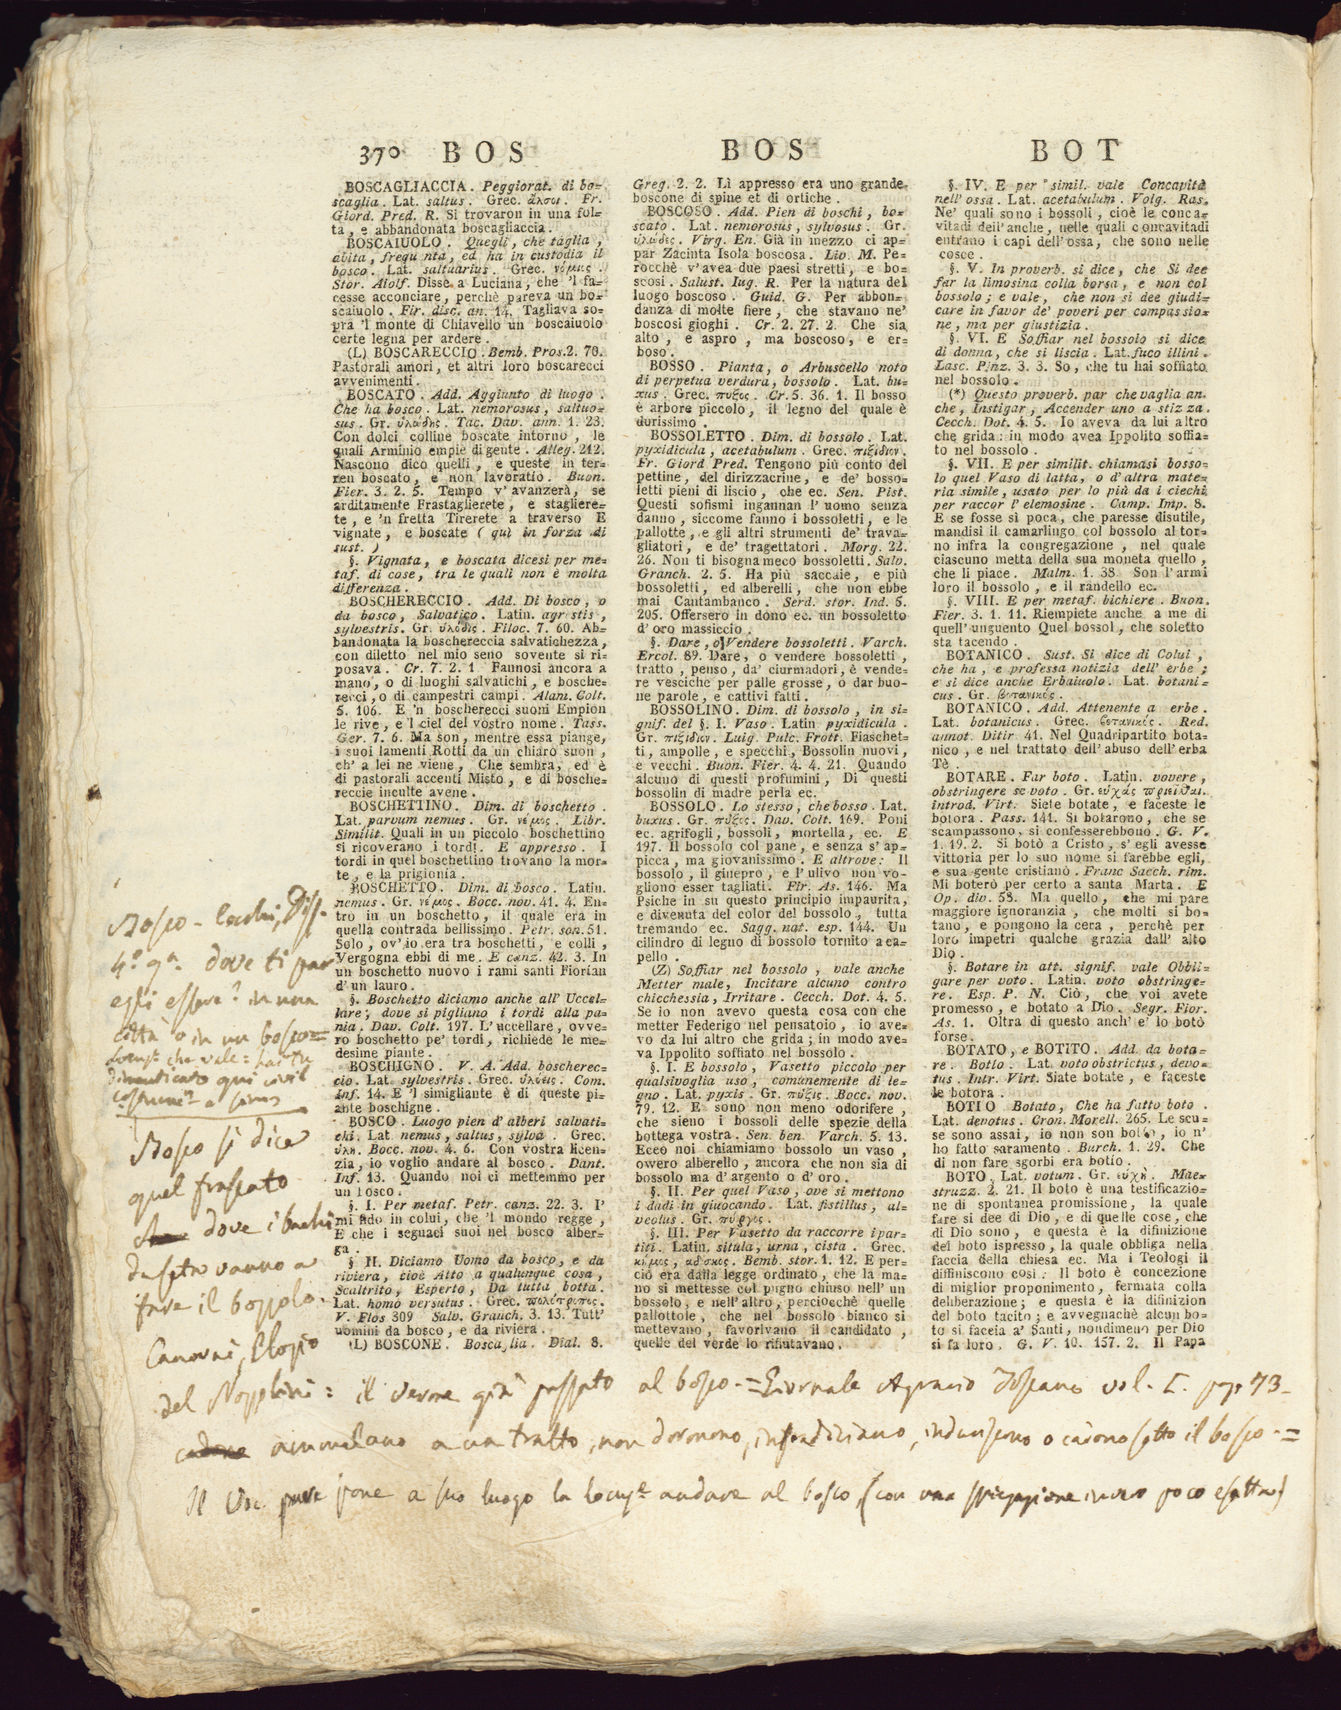 370 BOS
BOS
BOT
BOSCAGLIACCIA. Peggiorat. di bo=
scaglia. Lat. saltus. Grec. ἄλσος. Fr.
Giord. Pred. R. Si trovaron in una fol=
ta, e abbandonata boscagliaccia.
BOSCAIUOLO. Quegli, che taglia,
abita, frequ nta, ed ha in custodia il
bosco. Lat. saltuarius. Grec. νέμως.
Stor. Aiolf. Disse a Luciana, che 'l fa=
cesse acconciare, perchè pareva un bo=
scaiuolo. Fir. disc. an. 14. Tagliava so=
pra 'l monte di Chiavello un boscaiuolo
certe legna per ardere.
(L) BOSCARECCIO. Bemb. Pros. 2. 70.
Pastorali amori, et altri loro boscarecci
avvenimenti.
BOSCATO. Add. Aggiunto di luogo.
Che ha bosco. Lat. nemorosus, saltuo=
sus. Gr. ὑλώδης. Tac. Dav. ann. 1. 23.
Con dolci colline boscate intorno, le
quali Arminio empiè di gente. Alleg. 212.
Nascono dico quelli, e queste in ter=
ren boscato, e non lavoratio. Buon.
Fier. 3. 2. 5. Tempo v' avanzerà, se
arditamente Frastaglierete, e stagliere=
te, e 'n fretta Tirerete a traverso E
vignate, e boscate (quì in forza di
sust.)
§. Vignata, e boscata dicesi per me=
taf. di cose, tra le quali non è molta
differenza.
BOSCHERECCIO. Add. Di bosco, o
da bosco, Salvatico. Latin. agr stis,
sylvestris. Gr. ὑλώδης. Filoc. 7. 60. Ab=
bandonata la boschereccia salvatichezza,
con diletto nel mio seno sovente si ri=
posava. Cr. 7. 2. 1 Fannosi ancora a
mano, o di luoghi salvatichi, e bosche=
recci, o di campestri campi. Alam. Colt.
5. 106. E 'n boscherecci suoni Empion
le rive, e 'l ciel del vostro nome. Tass.
Ger. 7. 6. Ma son, mentre essa piange,
i suoi lamenti Rotti da un chiaro suon,
ch' a lei ne viene, Che sembra, ed è
di pastorali accenti Misto, e di bosche=
reccie inculte avene.
BOSCHETTINO. Dim. di boschetto.
Lat. parvum nemus. Gr. νέμος. Libr.
Similit. Quali in un piccolo boschettino
si ricoverano i tordi. E appresso. I
tordi in quel boschettino trovano la mor=
te, e la prigionia.
BOSCHETTO. Dim. di bosco. Latin.
nemus. Gr. νέμος. Bocc. nov. 41. 4. En=
tro in un boschetto, il quale era in
quella contrada bellissimo. Petr. son. 51.
Solo, ov' io era tra boschetti, e colli,
Vergogna ebbi di me. E canz. 42. 3. In
un boschetto nuovo i rami santi Fiorian
d' un lauro.
§. Boschetto diciamo anche all' Uccel=
lare, dove si pigliano i tordi alla pa=
nia. Dav. Colt. 197. L' uccellare, ovve=
ro boschetto pe' tordi, richiede le me=
desime piante.
BOSCHIGNO. V. A. Add. boscherec=
cio. Lat. sylvestris. Grec. ὑλώεις. Com.
Inf. 14. E 'l simigliante è di queste pi=
ante boschigne.
BOSCO. Luogo pien d' alberi salvati=
chi. Lat. nemus, saltus, sylva. Grec.
ὕλη. Bocc. nov. 4. 6. Con vostra licen=
zia, io voglio andare al bosco. Dant.
Inf. 13. Quando noi ci mettemmo per
un bosco.
§. I. Per metaf. Petr. canz. 22. 3. I'
mi fido in colui, che 'l mondo regge,
E che i seguaci suoi nel bosco alber=
ga.
§ II. Diciamo Uomo da bosco, e da
riviera, cioè Atto a qualunque cosa,
Scaltrito, Esperto, Da tutta botta.
Lat. homo versutus. Grec. πολύτροπος.
V. Flos 309 Salv. Granch. 3. 13. Tutt'
uomini da bosco, e da riviera.
(L) BOSCONE. Boscaglia. Dial. S.
Greg. 2. 2. Lì appresso era uno grande
boscone di spine et di ortiche.
BOSCOSO. Add. Pien di boschi, bo=
scato. Lat. nemorosus, sylvosus. Gr.
ὑλώδης. Virg. En. Già in mezzo ci ap=
par Zacinta Isola boscosa. Liv. M. Pe=
rocchè v' avea due paesi stretti, e bo=
scosi. Salust. Iug. R. Per la natura del
luogo boscoso. Guid. G. Per abbon=
danza di molte fiere, che stavano ne'
boscosi gioghi. Cr. 2. 27. 2. Che sia
alto, e aspro, ma boscoso, e er=
boso.
BOSSO. Pianta, o Arbuscello noto
di perpetua verdura, bossolo. Lat. bu=
xus. Grec. πύξος. Cr. 5. 36. 1. Il bosso
è arbore piccolo, il legno del quale è
durissimo.
BOSSOLETTO. Dim. di bossolo. Lat.
pyxidicula, acetabulum. Grec. πιξίδιον.
Fr. Giord Pred. Tengono più conto del
pettine, del dirizzacrine, e de' bosso=
letti pieni di liscio, che ec. Sen. Pist.
Questi sofismi ingannan l' uomo senza
danno, siccome fanno i bossoletti, e le
pallotte, e gli altri strumenti de' trava=
gliatori, e de' tragettatori. Morg. 22.
26. Non ti bisogna meco bossoletti. Salv.
Granch. 2. 5. Ha più saccaie, e più
bossoletti, ed alberelli, che non ebbe
mai Cantambanco. Serd. stor. Ind. 5.
205. Offersero in dono ec. un bossoletto
d' oro massiccio.
§. Dare, o Vendere bossoletti. Varch.
Ercol. 89. Dare, o vendere bossoletti,
tratto, penso, da' ciurmadori, è vende=
re vesciche per palle grosse, o dar buo=
ne parole, e cattivi fatti.
BOSSOLINO. Dim. di bossolo, in si=
gnif. del §. I. Vaso. Latin pyxidicula.
Gr. πιξίδιον. Luig. Pulc. Frott. Fiaschet=
ti, ampolle, e specchi, Bossolin nuovi,
e vecchi. Buon. Fier. 4. 4. 21. Quando
alcuno di questi profumini, Di questi
bossolin di madre perla ec.
BOSSOLO. Lo stesso, che bosso. Lat.
buxus. Gr. πύξος. Dav. Colt. 169. Poni
ec. agrifogli, bossoli, mortella, ec. E
197. Il bossolo col pane, e senza s' ap=
picca, ma giovanissimo. E altrove: Il
bossolo, il ginepro, e l' ulivo non vo=
gliono esser tagliati. Fir. As. 146. Ma
Psiche in su questo principio impaurita,
e divenuta del color del bossolo, tutta
tremando ec. Sagg. nat. esp. 144. Un
cilindro di legno di bossolo tornito a ca=
pello.
(Z) Soffiar nel bossolo, vale anche
Metter male, Incitare alcuno contro
chicchessia, Irritare. Cecch. Dot. 4. 5.
Se io non avevo questa cosa con che
metter Federigo nel pensatoio, io ave=
vo da lui altro che grida; in modo ave=
va Ippolito soffiato nel bossolo.
§. I. E bossolo, Vasetto piccolo per
qualsivoglia uso, comunemente di le=
gno. Lat. pyxis. Gr. πύξις. Bocc. nov.
79. 12. E sono non meno odorifere,
che sieno i bossoli delle spezie della
bottega vostra. Sen. ben. Varch. 5. 13.
Ecco noi chiamiamo bossolo un vaso,
ovvero alberello, ancora che non sia di
bossolo ma d' argento o d' oro.
§. II. Per quel Vaso, ove si mettono
i dadi in giuocando. Lat. fistillus, al=
veolus. Gr. πύργος.
§. III. Per Vasetto da raccorre i par=
titi. Latin. situla, urna, cista. Grec.
κημος, καδίσκος. Bemb. stor. 1. 12. E per=
ciò era dalla legge ordinato, che la ma=
no si mettesse col pugno chiuso nell' un
bossolo, e nell' altro, perciocchè quelle
pallottole, che nel bossolo bianco si
mettevano, favorivano il candidato,
quelle del verde lo rifiutavano.
§. IV. E per simil. vale Concavità
nell' ossa. Lat. acetabulum. Volg. Ras.
Ne' quali sono i bossoli, cioè le conca=
vitadi dell' anche, nelle quali concavitadi
entrano i capi dell' ossa, che sono nelle
cosce.
§. V. In proverb. si dice, che Si dee
far la limosina colla borsa, e non col
bossolo; e vale, che non si dee giudi=
care in favor de' poveri per compassio=
ne, ma per giustizia.
§. VI. E Soffiar nel bossolo si dice
di donna, che si liscia. Lat. fuco illini.
Lasc. Pinz. 3. 3. So, che tu hai soffiato
nel bossolo.
(*) Questo proverb. par che vaglia an.
che, Instigar, Accender uno a stizza.
Cecch. Dot. 4. 5. Io aveva da lui altro
che grida: in modo avea Ippolito soffia=
to nel bossolo.
§. VII. E per similit. chiamasi bosso=
lo quel Vaso di latta, o d' altra mate=
ria simile, usato per lo più da i ciechi
per raccor l' elemosine. Camp. Imp. 8.
E se fosse sì poca, che paresse disutile,
mandisi il camarlingo col bossolo al tor=
no infra la congregazione, nel quale
ciascuno metta della sua moneta quello,
che li piace. Malm. 1. 38 Son l' armi
loro il bossolo, e il randello ec.
§. VIII. E per metaf. bichiere. Buon.
Fier. 3. 1. 11. Riempiete anche a me di
quell' unguento Quel bossol, che soletto
sta tacendo.
BOTANICO. Sust. Si dice di Colui,
che ha, e professa notizia dell' erbe;
e si dice anche Erbaiuolo. Lat. botani=
cus. Gr. βοτανικός.
BOTANICO. Add. Attenente a erbe.
Lat. botanicus. Grec. βοτανικός. Red.
annot. Ditir 41. Nel Quadripartito bota=
nico, e nel trattato dell' abuso dell' erba
Tè.
BOTARE. Far boto. Latin. vovere,
obstringere se voto. Gr. εὐχάς ποιεῖσθαι.
introd. Virt. Siete botate, e faceste le
botora. Pass. 141. Si botarono, che se
scampassono, si confesserebbono. G. V.
1. 19. 2. Si botò a Cristo, s' egli avesse
vittoria per lo suo nome si farebbe egli,
e sua gente cristiano. Franc Sacch. rim.
Mi boterò per certo a santa Marta. E
Op. div. 58. Ma quello, che mi pare
maggiore ignoranzia, che molti si bo=
tano, e pongono la cera, perchè per
loro impetri qualche grazia dall' alto
Dio.
§. Botare in att. signif. vale Obbli=
gare per voto. Latin. voto obstringe=
re. Esp. P. N. Ciò, che voi avete
promesso, e botato a Dio. Segr. Fior.
As. 1. Oltra di questo anch' e' lo botò
forse.
BOTATO, e BOTITO. Add. da bota=
re. Botio. Lat. voto obstrictus, devo=
tus. Intr. Virt. Siate botate, e faceste
le botora.
BOTIO Botato, Che ha fatto boto.
Lat. devotus. Cron. Morell. 265. Le scu=
se sono assai, io non son botio, io n'
ho fatto saramento. Burch. 1. 29. Che
di non fare sgorbi era botio.
BOTO. Lat. votum. Gr. εὐχή. Mae=
struzz. 2. 21. Il boto è una testificazio=
ne di spontanea promissione, la quale
fare si dee di Dio, e di quelle cose, che
di Dio sono, e questa è la difinizione
del boto ispresso, la quale obbliga nella
faccia della chiesa ec. Ma i Teologi il
diffiniscono così: Il boto è concezione
di miglior proponimento, fermata colla
deliberazione; e questa è la difinizion
del boto tacito; e avvegnachè alcun bo=
to si faccia a' Santi, nondimeno per Dio
si fa loro. G. V. 10. 157. 2. Il Papa
Bosco - Cecchi, Diss.
4.º 9ª. dove ti par
egli essere? in una
città o in un bosco=
che vale: hai tu
dimenticato ogni civil
Bosco si dice
quel frascato
dove i bachi
da seta vanno a
fare il bozzolo.
Elogio
del : il verone già passato al bosco.= Giornale Agrario Toscano vol. I. pag. 73-
ammalano a un tratto, non dormono, o cadono sotto il bosco.=
Il Voc. pure pone a suo luogo la andare al bosco, (con una spiegazione invero poco esatta)